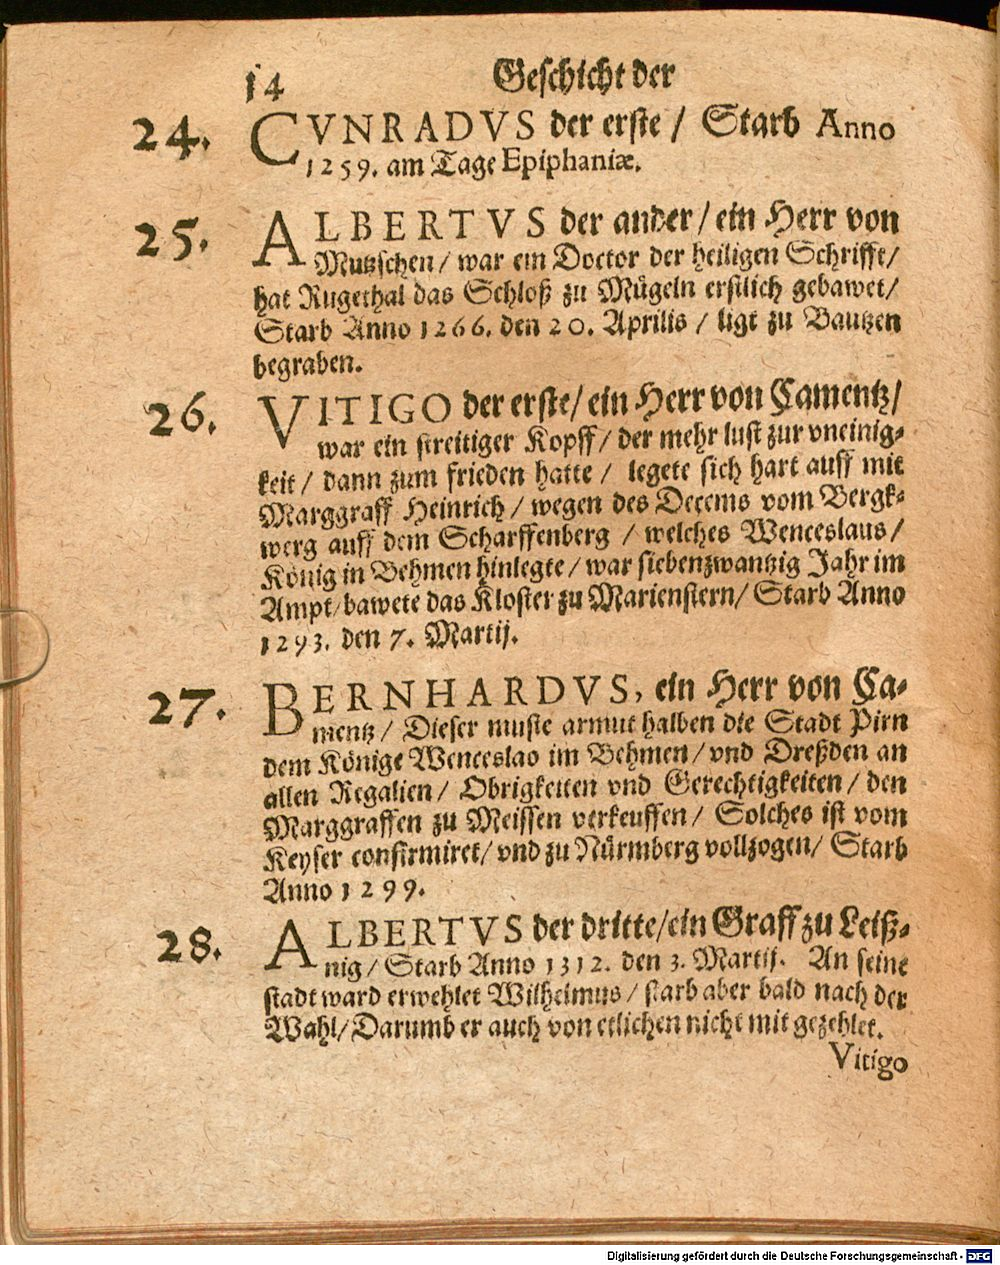 14 Geschicht der
24. CVNRADVS der erste / Starb Anno
1259. am Tage Epiphaniæ.
25. ALBERTVS der ander / ein Herr von
Mutzschen / war ein Doctor der heiligen Schrifft /
hat Rugethal das Schloß zu Mügeln erstlich gebawet /
Starb Anno 1266. den 20. Aprilis / ligt zu Bautzen
begraben.
26. VITIGO der erste / ein Herr von Camentz /
war ein streitiger Kopff / der mehr lust zur vneinig-
keit / dann zum frieden hatte / legete sich hart auff mit
Marggraff Heinrich / wegen des Decems vom Bergk-
werg auff dem Scharffenberg / welches Wenceslaus /
König in Behmen hinlegte / war siebenzwantzig Jahr im
Ampt / bawete das Kloster zu Marienstern / Starb Anno
1293. den 7. Martij.
27. BERNHARDVS, ein Herr von Ca-
mentz / Dieser muste armut halben die Stadt Pirn
dem Könige Wenceslao im Behmen / vnd Dreßden an
allen Regalien / Obrigkeiten vnd Gerechtigkeiten / den
Marggraffen zu Meissen verkeuffen / Solches ist vom
Keyser confirmiret / vnd zu Nürmberg vollzogen / Starb
Anno 1299.
28. ALBERTVS der dritte / ein Graff zu Leiß-
nig / Starb Anno 1312. den 3. Martij. An seine
stadt ward erwehlet Wilhelmus / starb aber bald nach der
Wahl / Darumb er auch von etlichen nicht mit gezehlet.
Vitigo
Digitalisierung gefördert durch die Deutsche Forschungsgemeinschaft - DFG